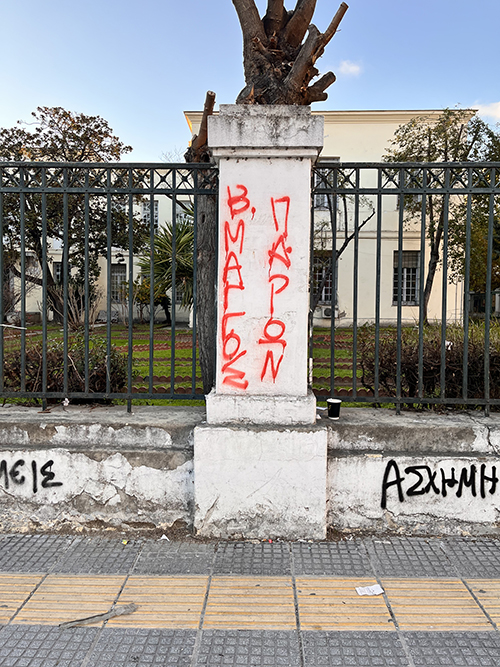 Β. ΜΑΓΓΟΣ
ΠΑΡΩΝ
ΜΕΙΣ
ΑΣΧΗΜΗ